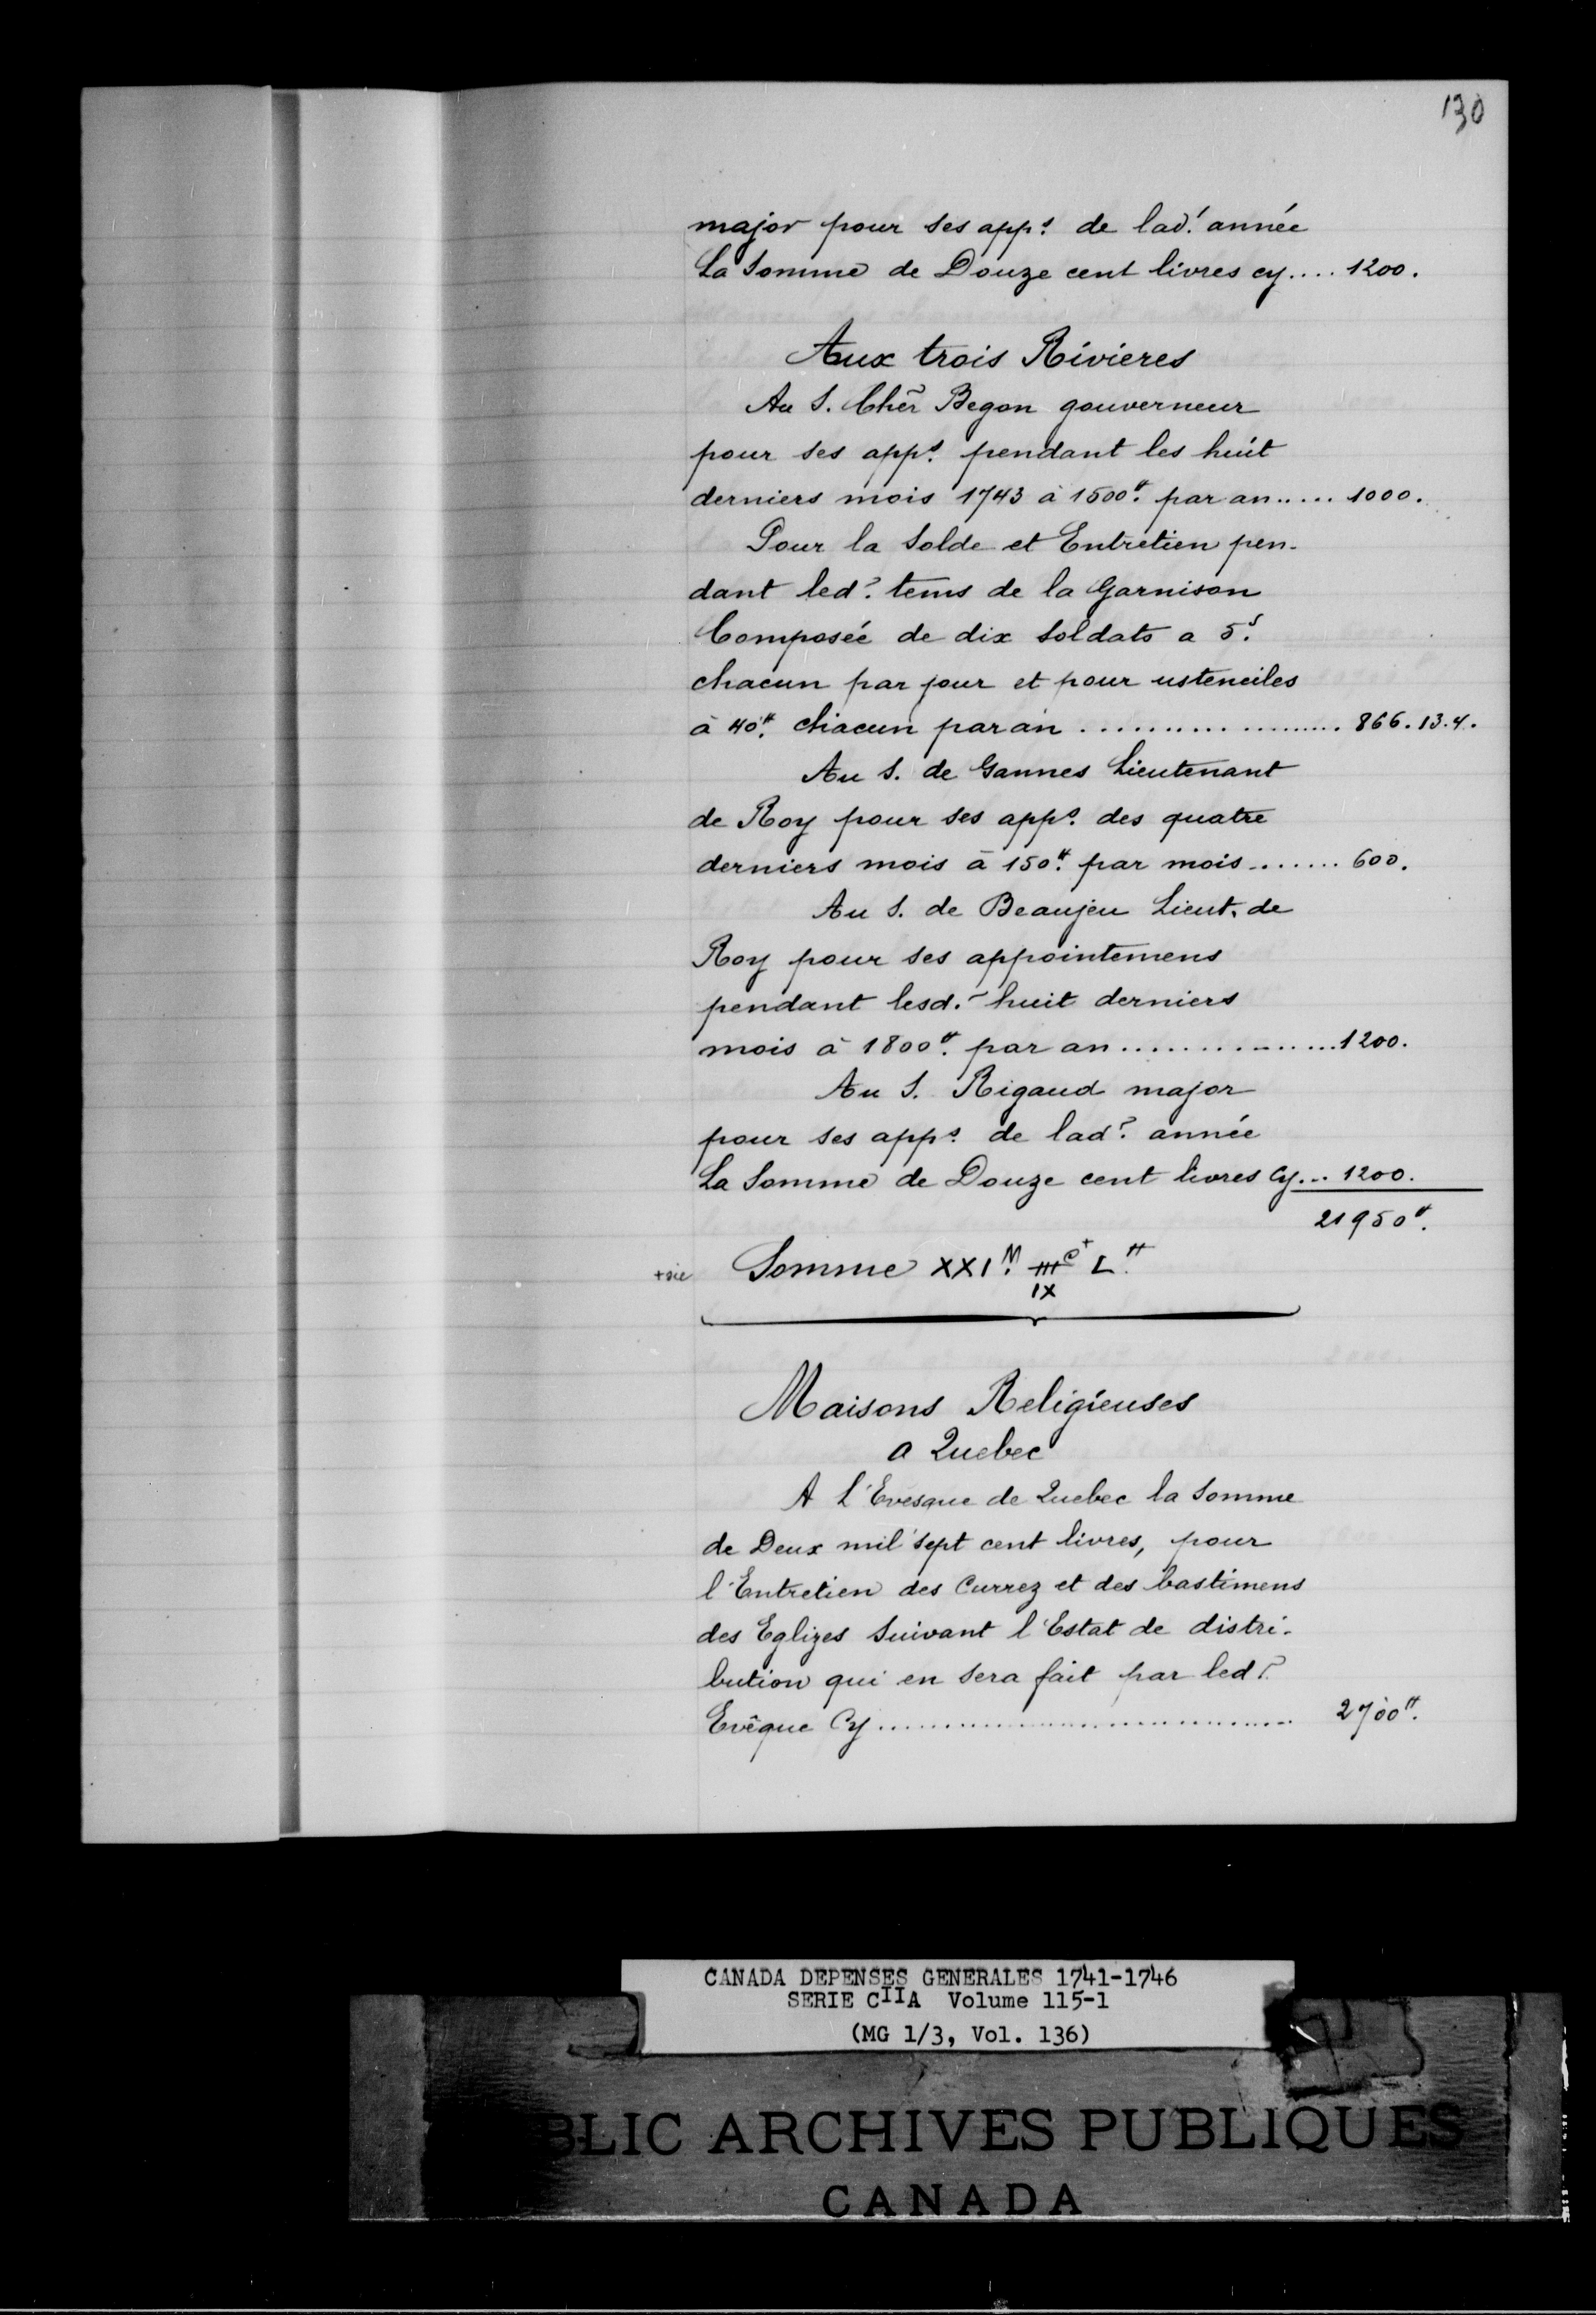 130
major pour ses app.s de lad. année
La Somme de Douze cent livres cy.... 1200.
Aux trois Rivieres
Au S. Cher Begon gouverneur
pour ses app.s pendant les huit
derniers mois 1743 à 1500.# par an..... 1000.
Pour la Solde et Entretien pen-
dant led.? tems de la Garnison
Composée de dix soldats a 5.s
chacun par jour et pour usteneiles
à 40.# chacun par an ................... 866.13.4.
Au S. de Gannes Lieutenant
de Roy pour ses app.s des quatre
derniers mois à 150.# par mois....... 600.
Au S. de Beaujeu Lieut. de
Roy pour ses appointemens
pendant lesd. huit derniers
mois à 1800.# par an...............1200.
Au S. Rigaud major
pour ses app.s de lad.? année
La Somme de Douze cent livres Cy... 1200.
21950.#
+sic Somme XXI.M III C+ L.#
IX
Maisons Religieuses
a Quebec
A l'Evesque de Quebec la Somme
de Deux mil sept cent livres, pour
l'Entretien des Currez et des bastimens
des Eglizes Suivant l'Estat de distri-
bution qui en sera fait par led.?
Evêque Cy.............................. 2700.#
CANADA DEPENSES GENERALES 1741-1746
SERIE CIIA Volume 115-1
(MG 1/3, Vol. 136)
BLIC ARCHIVES PUBLIQUES
CANADA